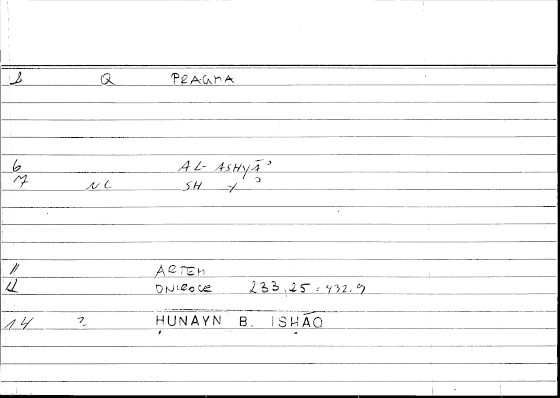 Q PRAGMA
6 AL- ASHYĀʾ
7 NL SH Y ʾ
11 ARTEM
ONIROCR 233,25 = 432.9
14 ? ḤUNAYN B. ISḤĀQ